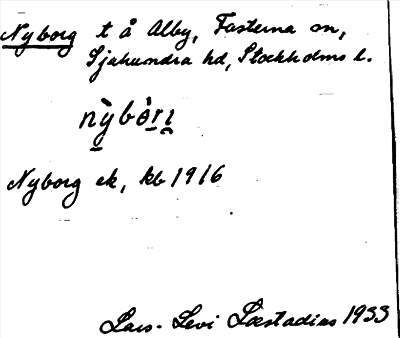 Nyborg t å Alby, Fasterna sn,
Sjuhundra hd, Stockholms l.
nỳbòrı
Nyborg ek, kb 1916
Lars-Levi Læstadius 1933